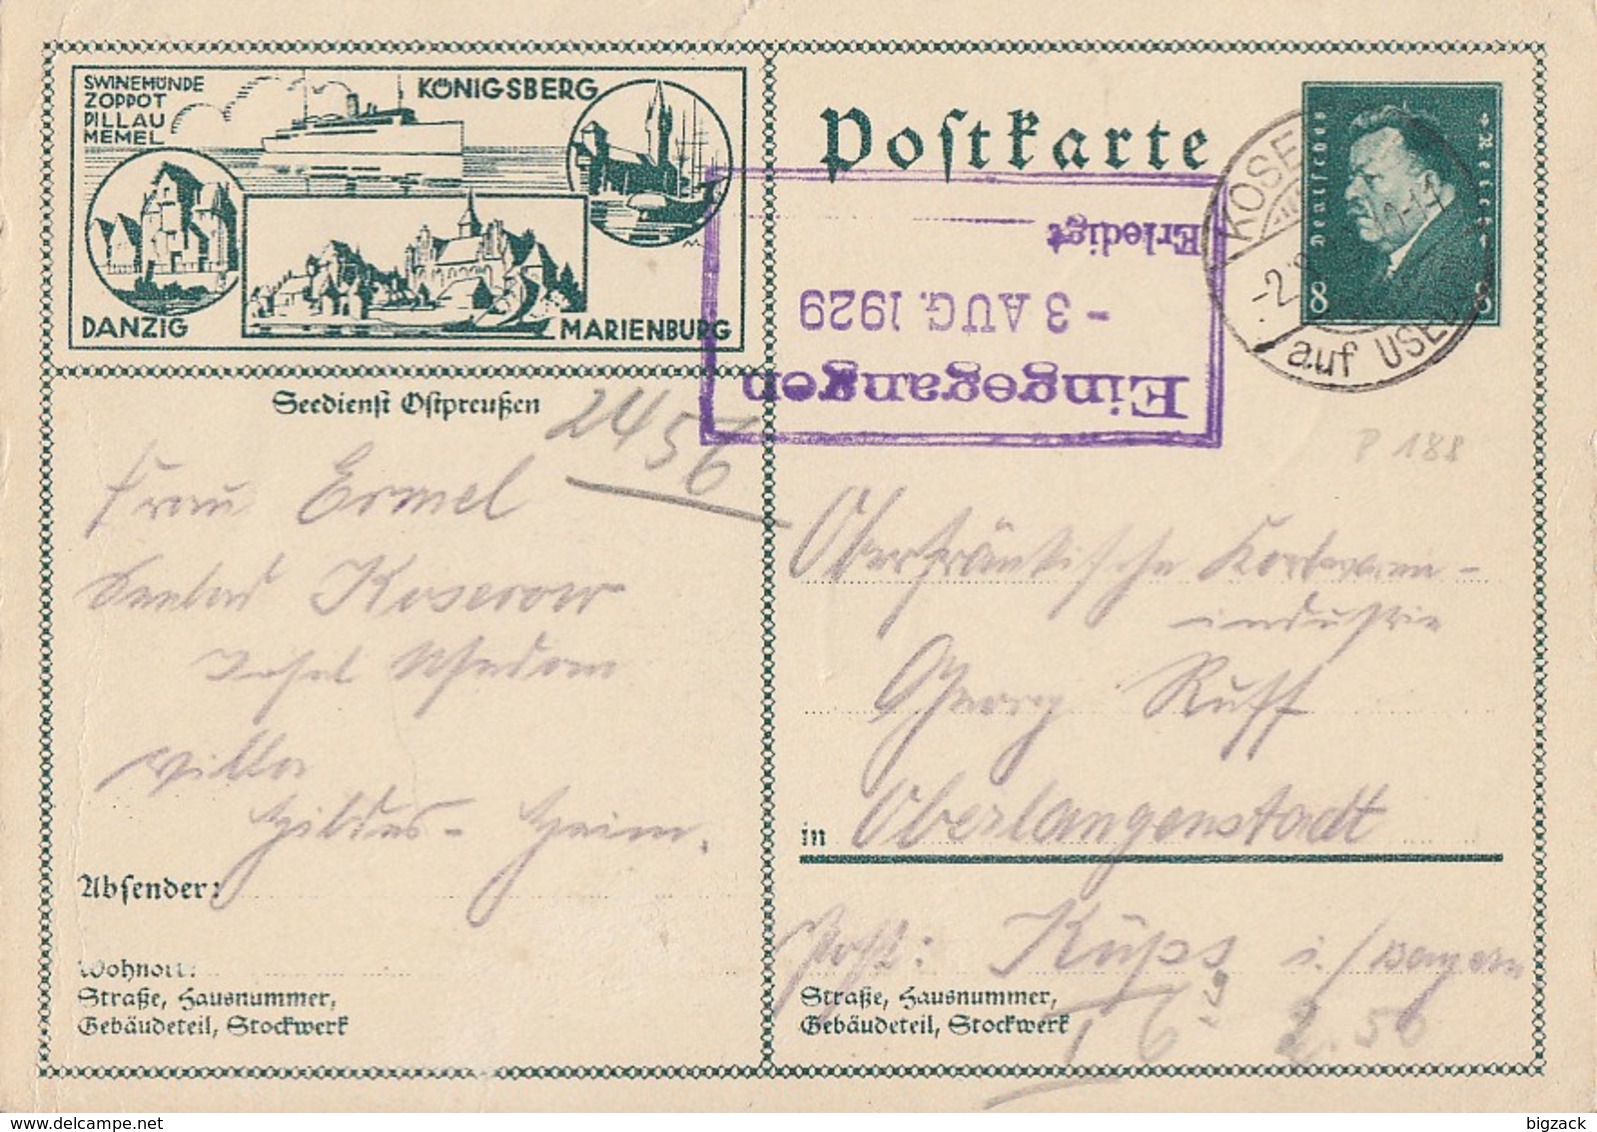 SWINEMÜNDE
ZOPPOT
PILLAU
MEMEL
KÖNIGSBERG
DANZIG
MARIENBURG
Seedienst Ostpreußen
Postkarte
Deutsches Reich
8 8
auf USE
Eingegangen
- 3 AUG. 1929
Erledigt
2456
P 188
Frau Ermel
Seebad Koserow
Insel Usedom
Villa
Hildes-Heim.
Absender:
Wohnort:
Straße, Hausnummer,
Gebäudeteil, Stockwerk
Oberfränkische Korbwaren-
industrie
Georg Ruff
in Oberlangenstadt
Post: Küps i./Bayern
Straße, Hausnummer,
Gebäudeteil, Stockwerk
2.50
delcampe.net
bigzack